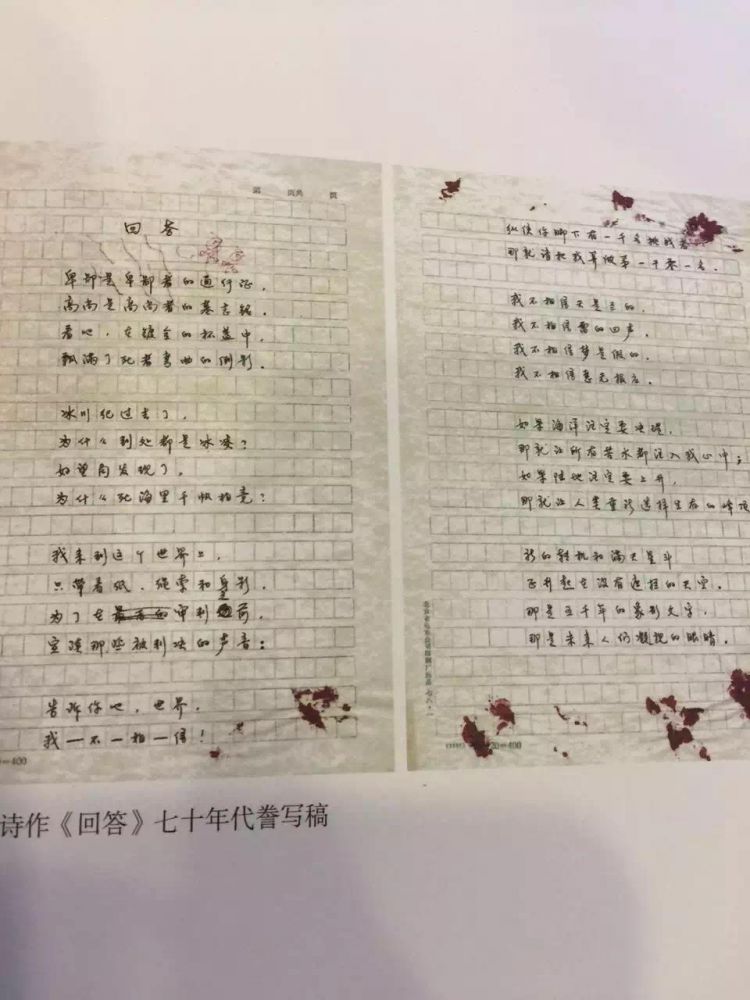 第 页共 页
回答
卑鄙是卑鄙者的通行证,
高尚是高尚者的墓志铭.
看吧,在镀金的中,
飘满了死者弯曲的倒影.
冰川纪过去了,
为什么到处都是冰凌?
好望角发现了,
为什么死海里千帆相竞?
我来到这个世界上,
只带着纸、绳索和身影,
为了在审判前,
宣读那些被判决的声音:
告诉你吧,世界,
我—不—相—信!
=400
纵使你脚下有一千名挑战者
那就请把我算做第一千零一名.
我不相信天是兰的,
我不相信雷的回声,
我不相信梦是假的,
我不相信死无报应.
如果海洋注定要决堤,
那就让所有苦水都注入我心中;
如果陆地注定要上升,
那就让人类重新选择生存的峰顶
新的转机和满天星斗
正升起在没有遮拦的天空.
那是五千年的象形文字,
那是未来人们凝视的眼睛.
20=400
诗作《回答》七十年代誊写稿